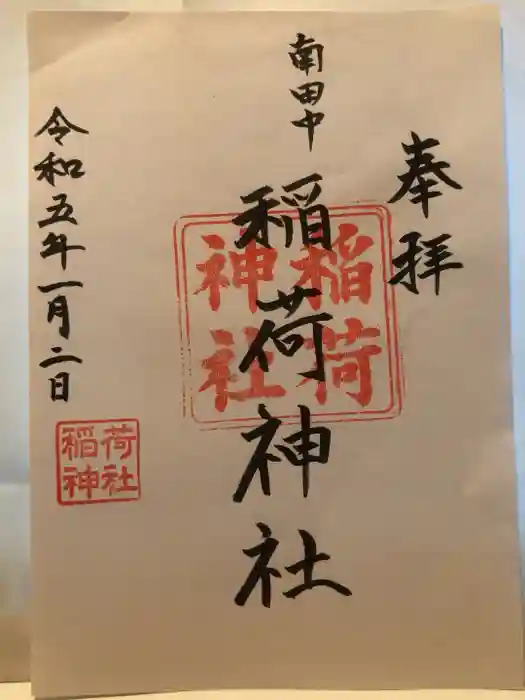 奉拝
南田中
稲荷神社
稲荷
神社
令和五年一月二日
稲荷
神社